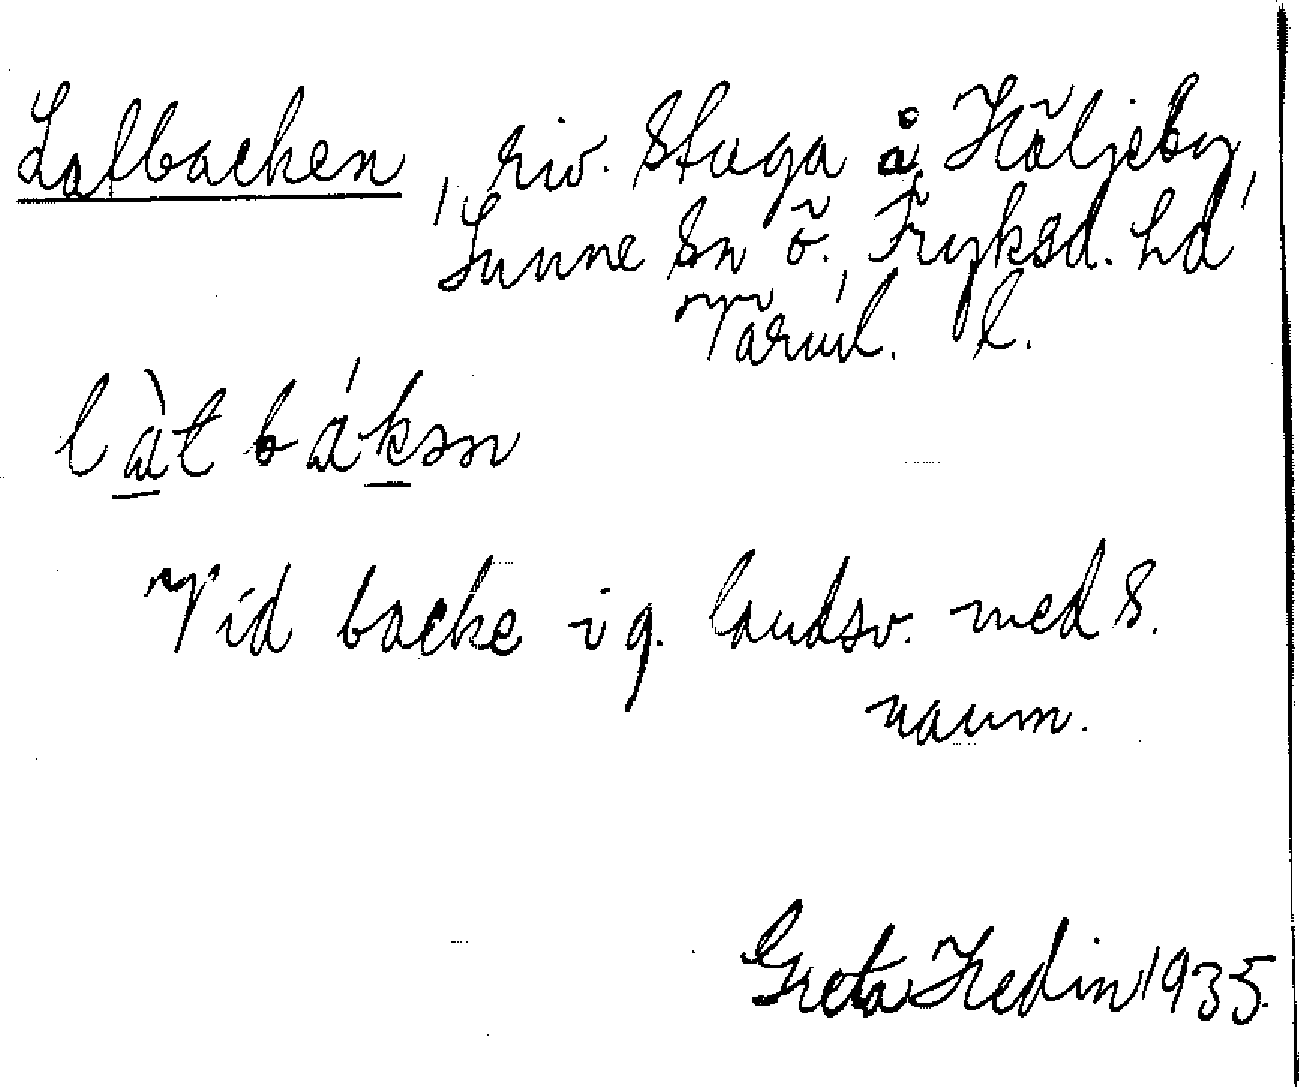 Latbacken, riv. stuga å Häljeby,
Sunne sn ö. Fryksd. hd,
Värml. l.
làt bákən
Vid backe i g. landsv. med s.
namn.
Greta Hedin 1935.